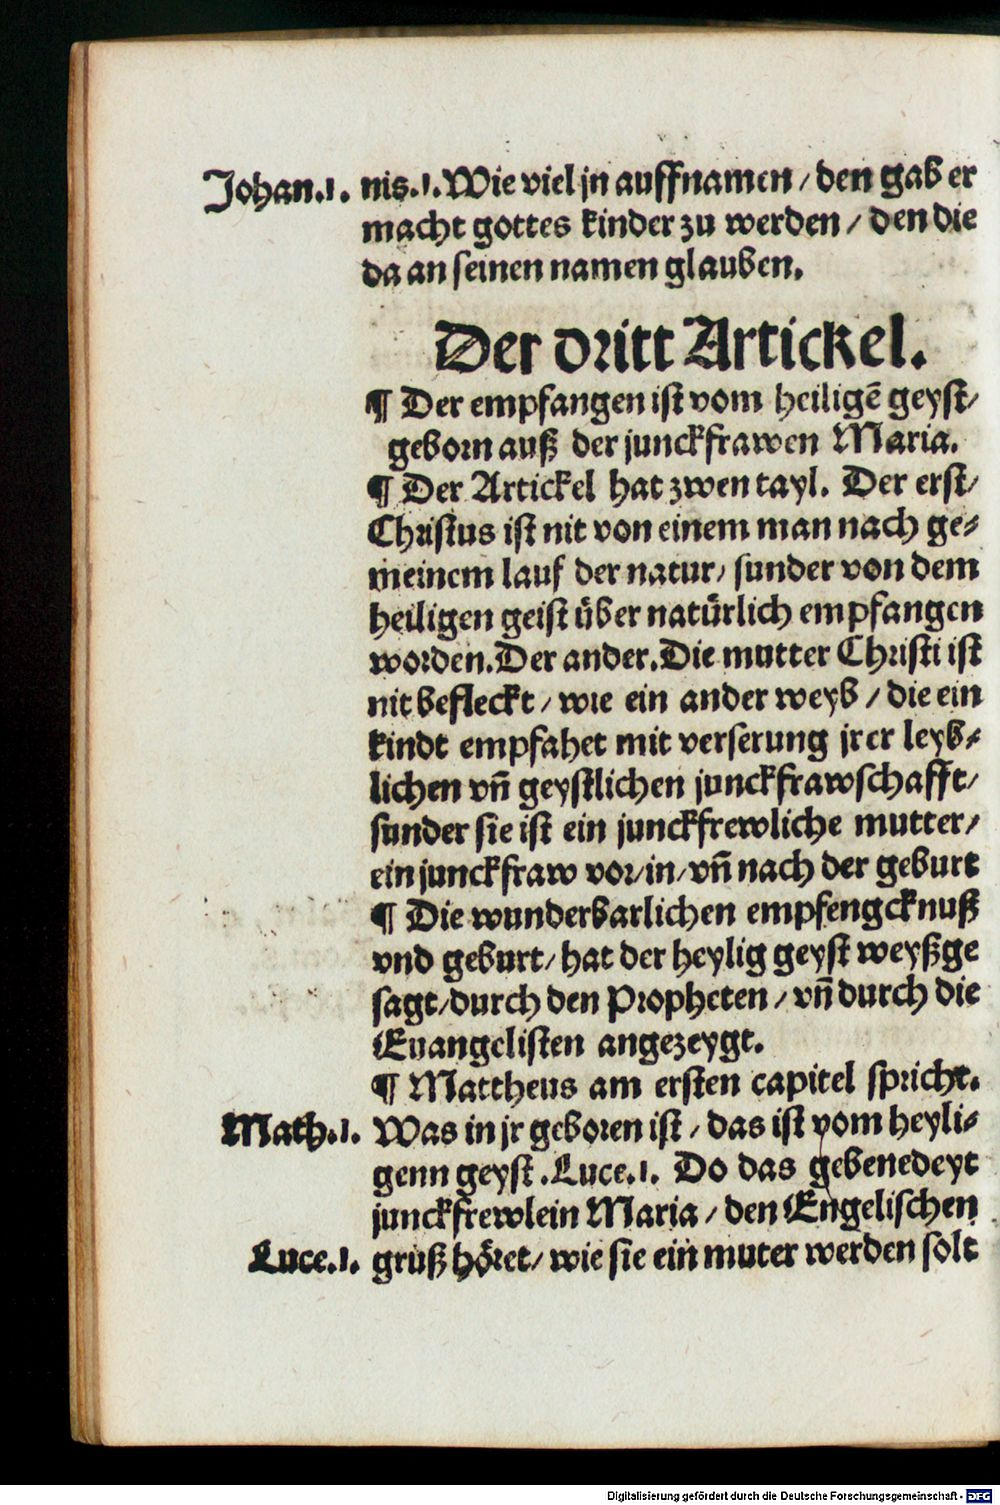 Johan.1. nis.1. Wie viel jn auffnamen / den gab er
macht gottes kinder zu werden / den die
da an seinen namen glauben.
Der dritt Artickel.
¶ Der empfangen ist vom heiligē geyst /
geborn auß der junckfrawen Maria.
¶ Der Artickel hat zwen tayl. Der erst /
Christus ist nit von einem man nach ge⸗
meinem lauf der natur / sunder von dem
heiligen geist über natürlich empfangen
worden. Der ander. Die mutter Christi ist
nit befleckt / wie ein ander weyb / die ein
kindt empfahet mit verserung jrer leyb⸗
lichen vn̄ geystlichen junckfrawschafft /
sunder sie ist ein junckfrewliche mutter /
ein junckfraw vor / in / vn̄ nach der geburt
¶ Die wunderbarlichen empfengcknuß
vnd geburt / hat der heylig geyst weyßge
sagt / durch den Propheten / vn̄ durch die
Euangelisten angezeygt.
¶ Mattheus am ersten capitel spricht.
Math.1. Was in jr geboren ist / das ist vom heyli⸗
genn geyst. Luce.1. Do das gebenedeyt
junckfrewlein Maria / den Engelischen
Luce.1. gruß höret / wie sie ein muter werden solt
Digitalisierung gefördert durch die Deutsche Forschungsgemeinschaft - DFG